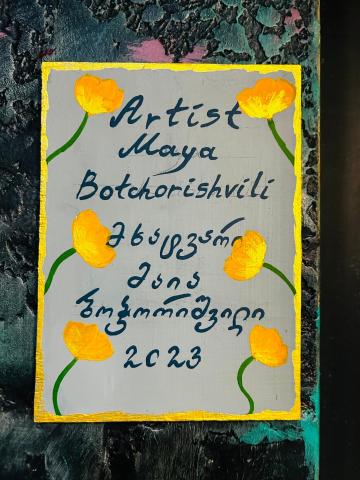 Artist
Maya
Botchorishvili
მხატვარი
მაია
ბოჭორიშვილი
2023